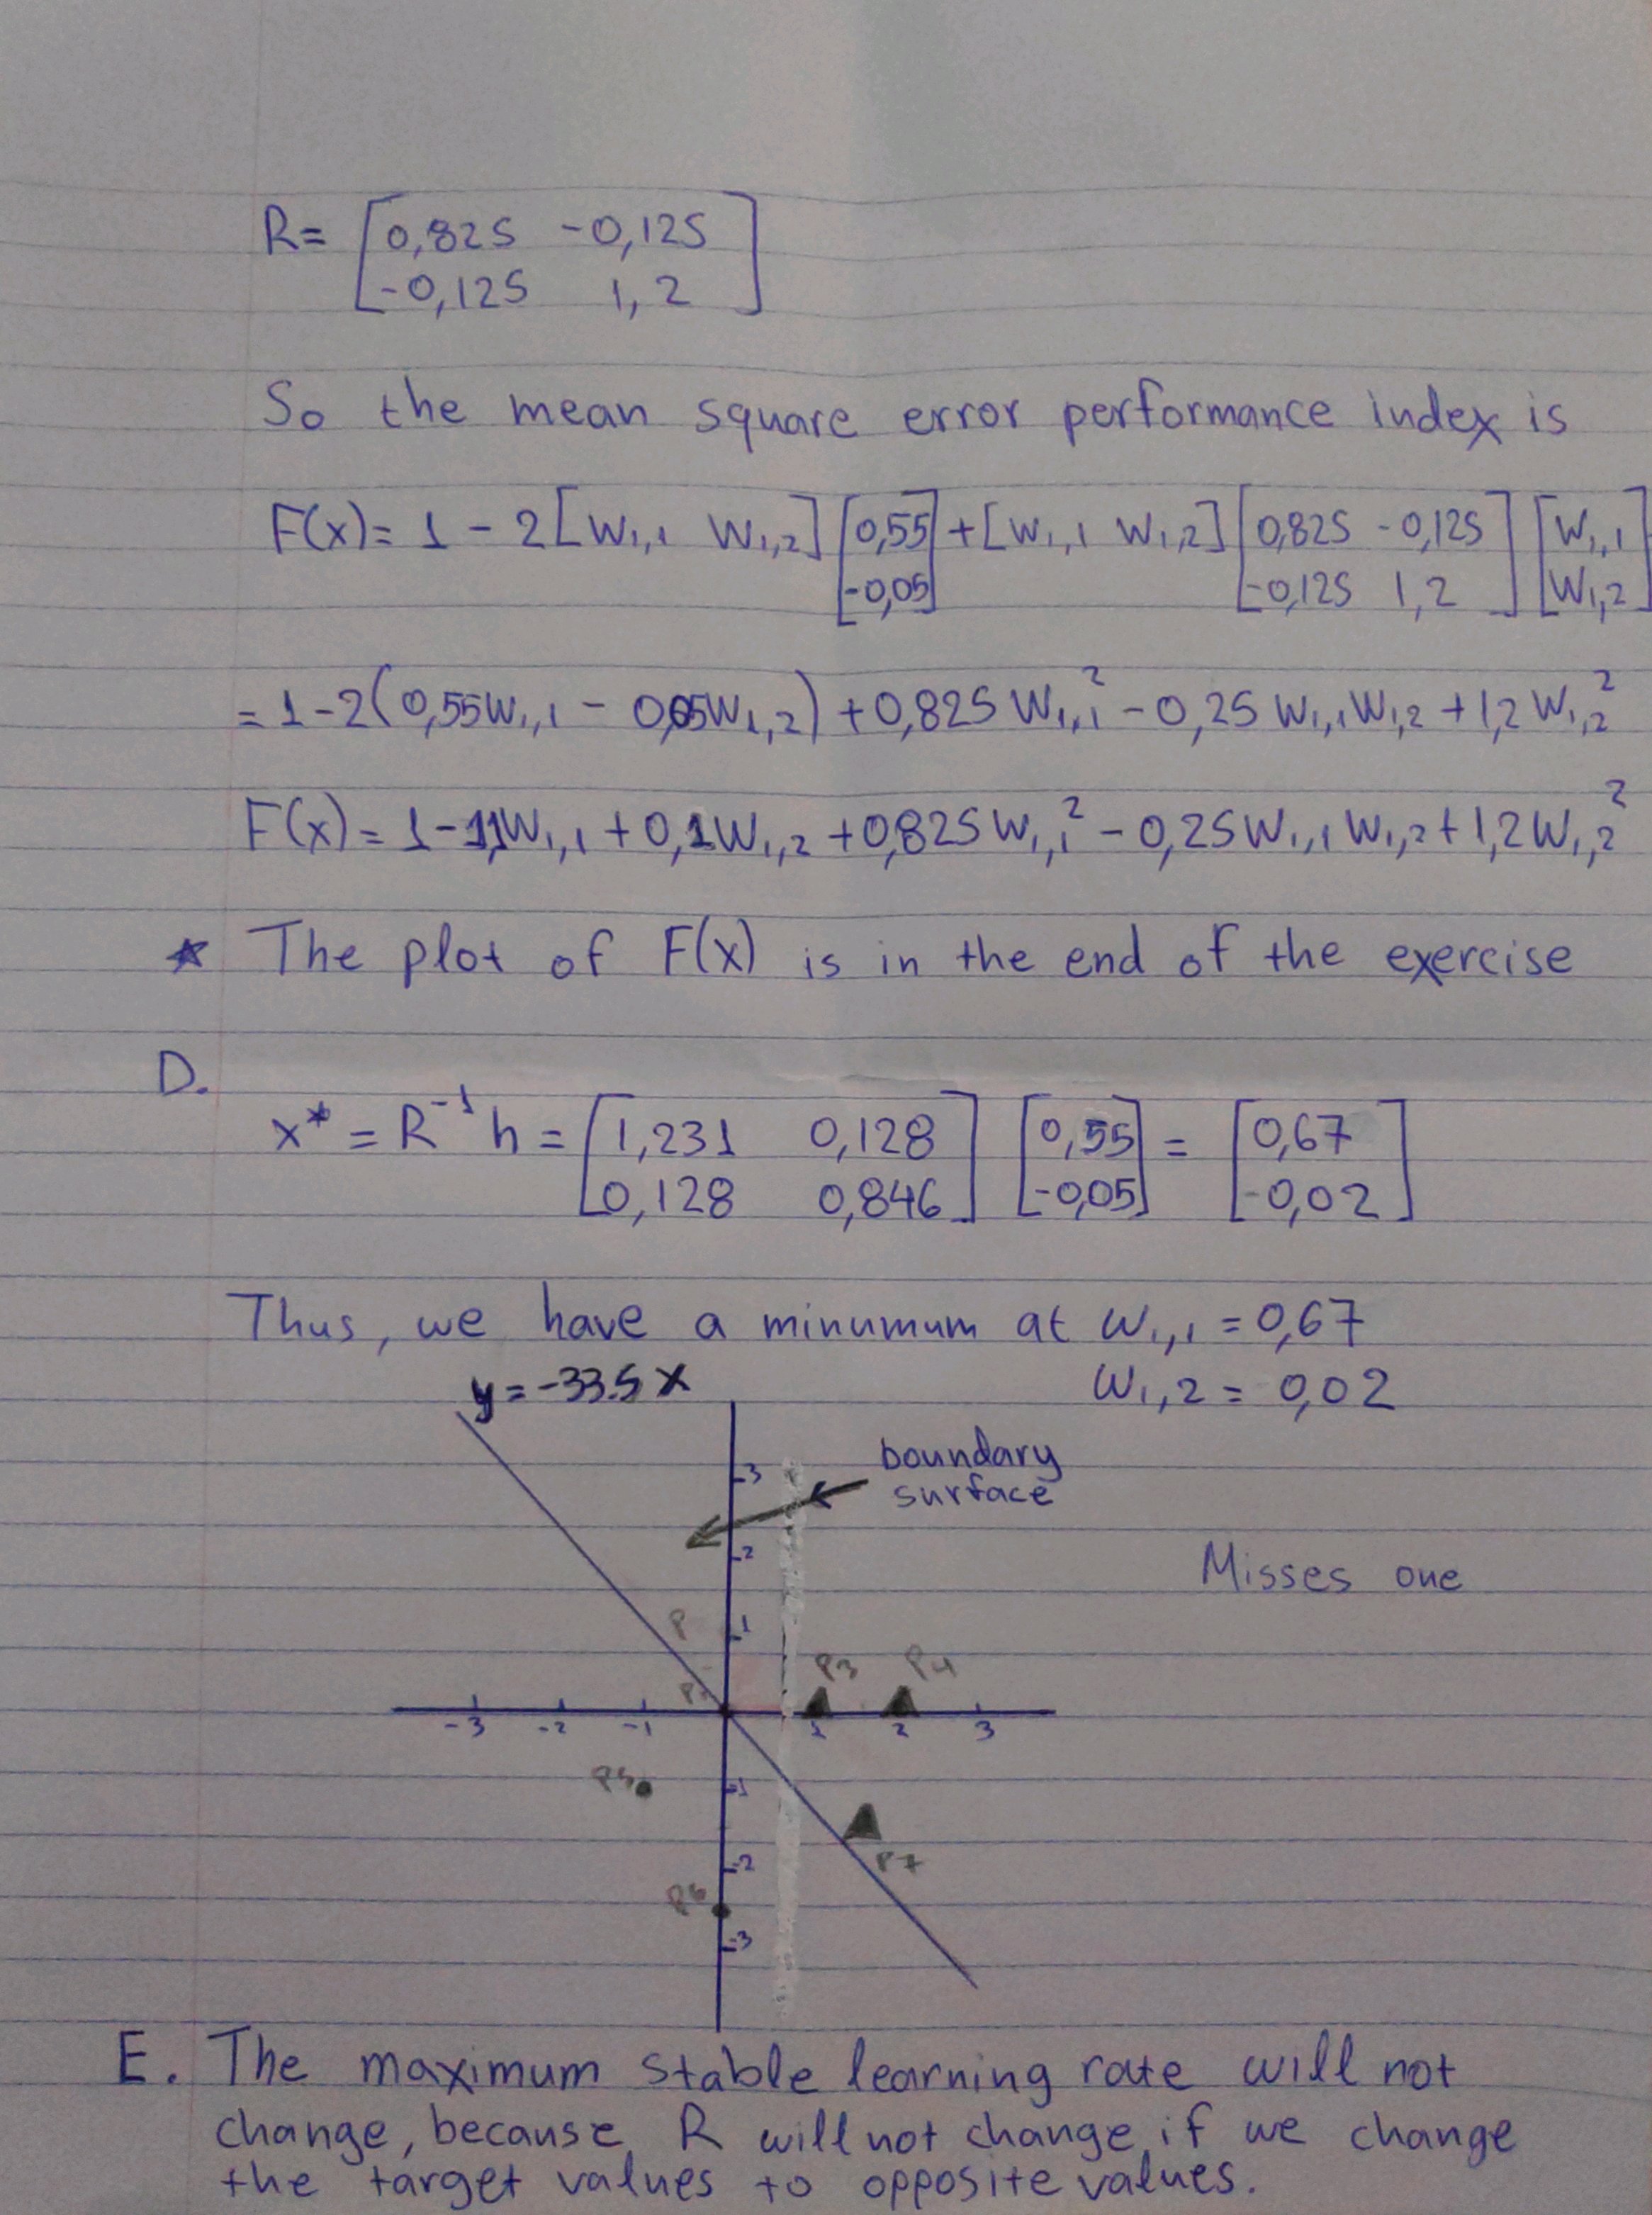 R= [0,825 -0,125
-0,125 1,2]
So the mean square error performance index is
F(x)= 1 - 2 [W1,1 W1,2] [0,55 -0,05] + [W1,1 W1,2] [0,825 -0,125 -0,125 1,2] [W1,1 W1,2]
= 1-2(0,55W1,1 - 0,05W1,2) + 0,825 W1,1² - 0,25 W1,1 W1,2 + 1,2 W1,2²
F(x) = 1-1,1W1,1 + 0,1W1,2 + 0,825 W1,1² - 0,25 W1,1 W1,2 + 1,2 W1,2²
* The plot of F(x) is in the end of the exercise
D.
x* = R⁻¹ h = [1,231 0,128 0,128 0,846] [0,55 -0,05] = [0,67 -0,02]
Thus, we have a minumum at W1,1 = 0,67
y = -33.5 x W1,2 = 0,02
boundary
surface
3
2
Misses one
P
1
P3 P4
-3 -2 -1 1 2 3
P5
-1
P7
-2
P6
-3
E. The maximum stable learning rate will not
change, because R will not change, if we change
the target values to opposite values.